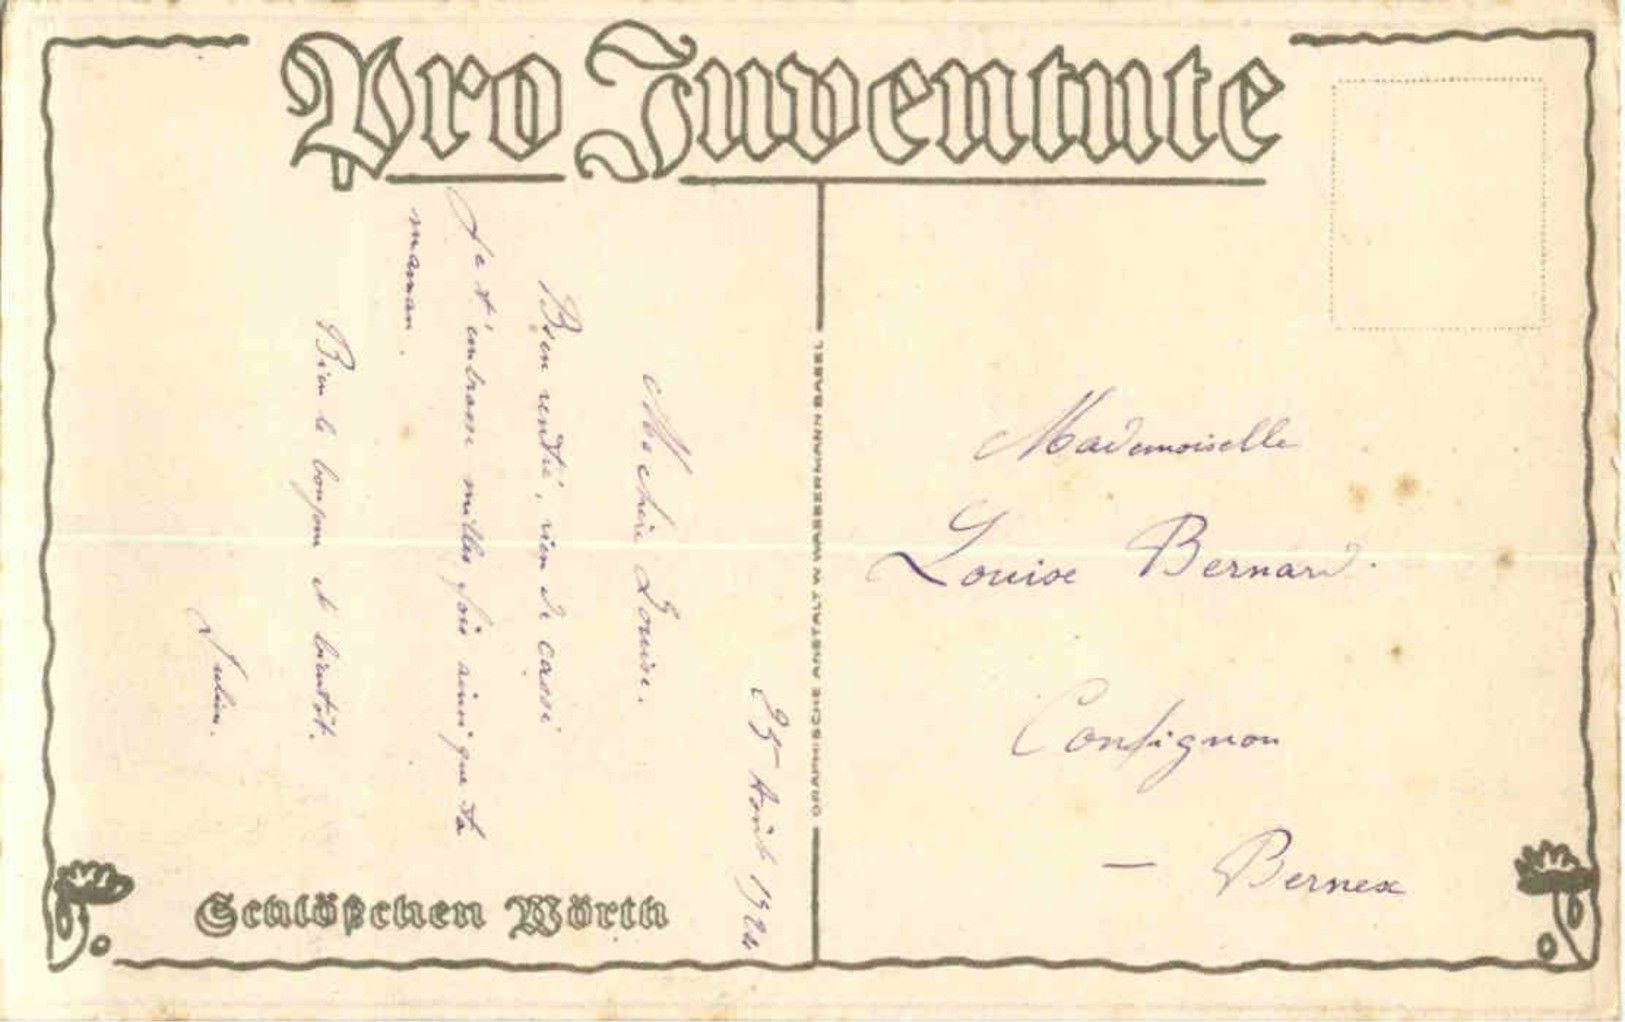 Pro Juventute
25 Août 1924
Ma chère Louise.
Bien rentré, rien de cassé
Je t'embrasse milles fois ainsi que ta
maman.
Bien le bonjour et bientôt.
Julien.
Schlößchen Wörth
GRAPHISCHE ANSTALT W. WASSERMANN BASEL
Mademoiselle
Louise Bernard.
Confignon
— Bernex